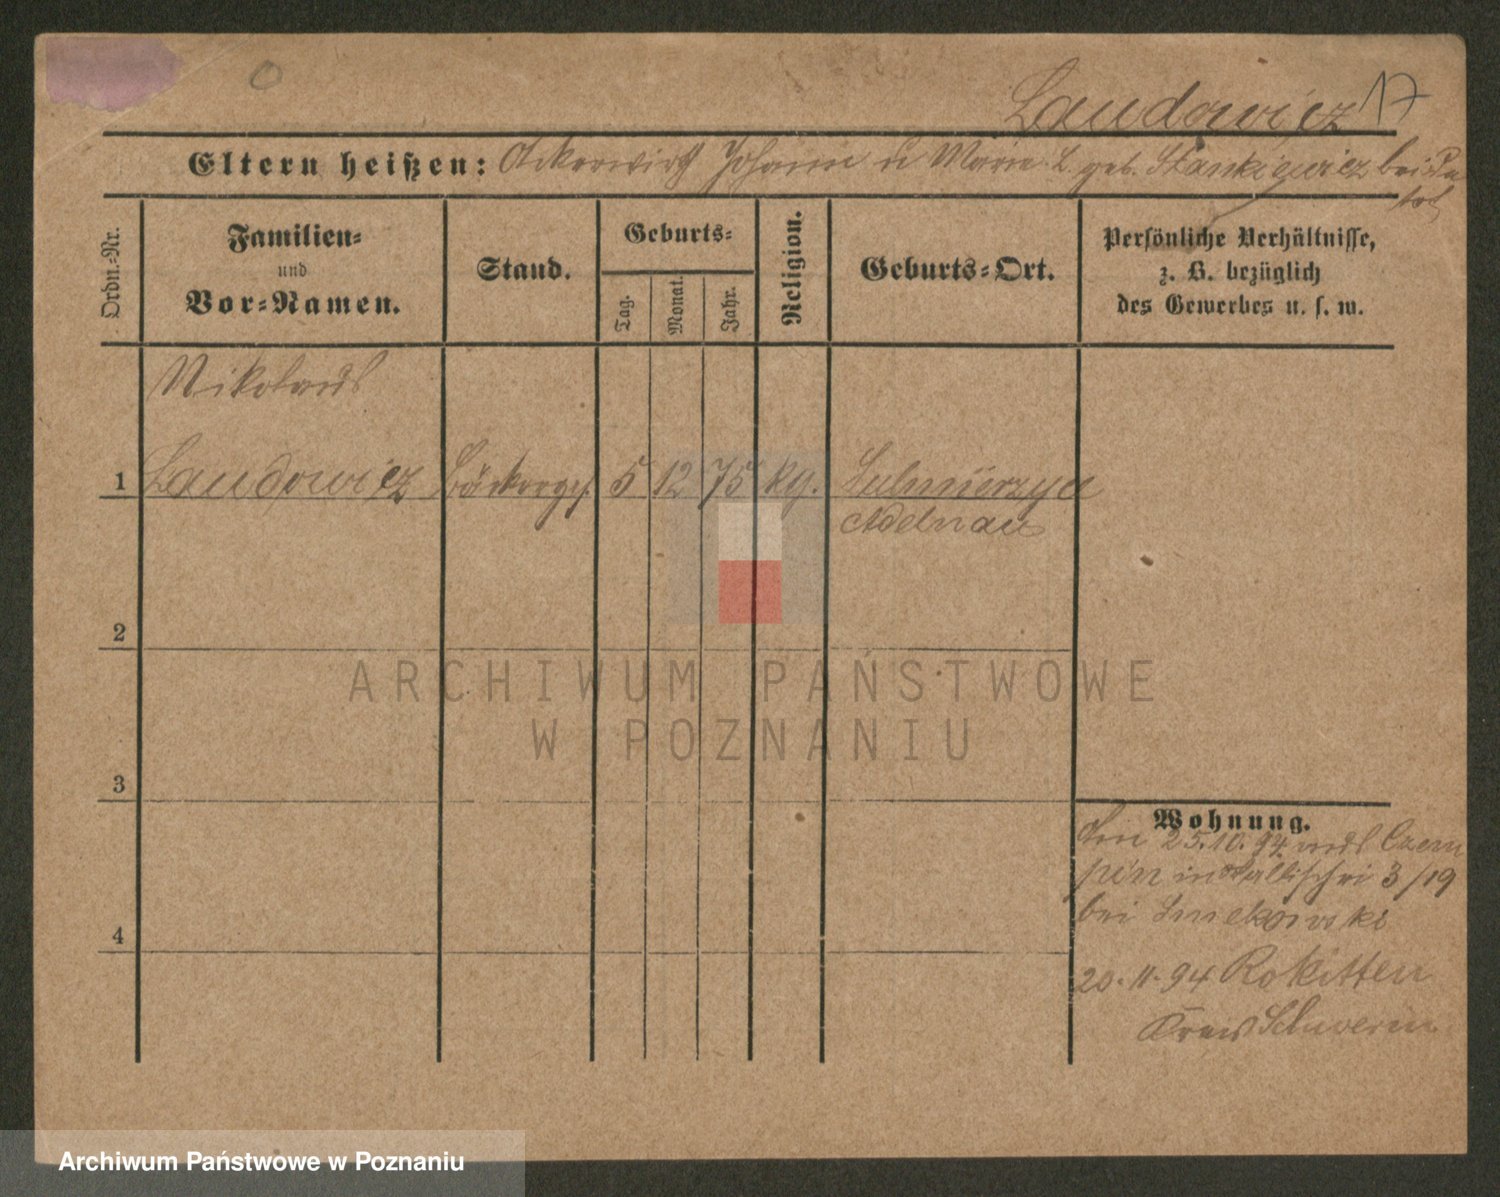 0
Laudowicz 17
Eltern heißen: Ackerwirth Johann u Marie L. geb. Stankiewicz bei
Ordn.-Nr.
Familien-
und
Vor-Namen.
Stand.
Geburts-
Tag.
Monat.
Jahr.
Religion.
Geburts-Ort.
Persönliche Verhältnisse,
z. B. bezüglich
des Gewerbes u. s. w.
Nikolaus
1 Laudowicz Bäckerges. 5 12 75 kg. Sulmierzyce
Adelnau
2
3
4
Wohnung.
Am 25.10.94 aus Czem
pin in Wallischei 3/19
bei
20.11.94 Rokitten
Kreis Schwerin
ARCHIWUM PAŃSTWOWE
W POZNANIU
Archiwum Państwowe w Poznaniu